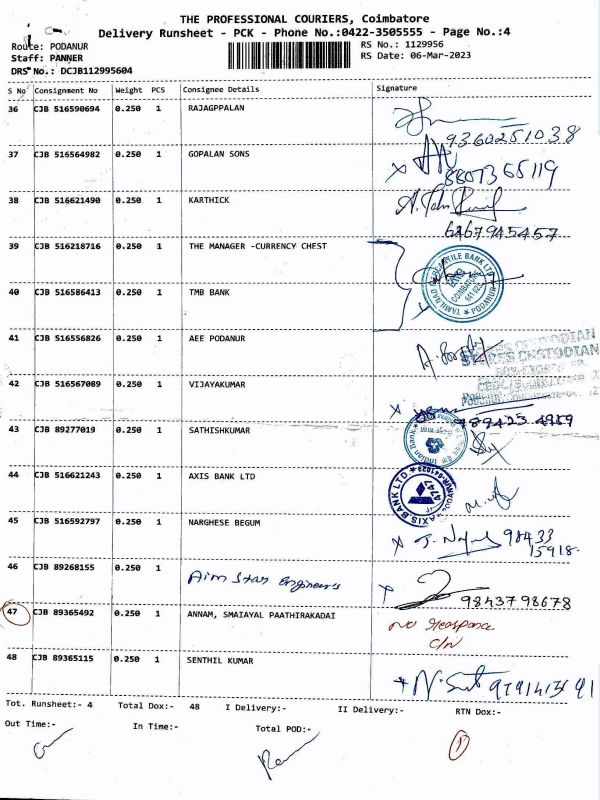 THE PROFESSIONAL COURIERS, Coimbatore
Delivery Runsheet - PCK - Phone No.:0422-3505555 - Page No.:4
Route: PODANUR
RS No.: 1129956
Staff: PANNER
RS Date: 06-Mar-2023
DRS No.: DCJB112995604
S No Consignment No Weight PCS Consignee Details Signature
36 CJB 516590694 0.250 1 RAJAGPPALAN
9360251038
37 CJB 516564982 0.250 1 GOPALAN SONS
8807365119
38 CJB 516621490 0.250 1 KARTHICK
6467945457
39 CJB 516218716 0.250 1 THE MANAGER -CURRENCY CHEST
TAMILNAD MERCANTILE BANK LTD
COIMBATORE
641 023
PODANUR
40 CJB 516586413 0.250 1 TMB BANK
41 CJB 516556826 0.250 1 AEE PODANUR
STORES CUSTODIAN
42 CJB 516567089 0.250 1 VIJAYAKUMAR
989425 4959
43 CJB 89277019 0.250 1 SATHISHKUMAR
44 CJB 516621243 0.250 1 AXIS BANK LTD
AXIS BANK LTD
PODANUR-641023
4747
45 CJB 516592797 0.250 1 NARGHESE BEGUM
98433
15918-
46 CJB 89268155 0.250 1 Aim Star Engineers
9843798678
47 CJB 89365492 0.250 1 ANNAM, SMAIAYAL PAATHIRAKADAI
No Response
C/N
48 CJB 89365115 0.250 1 SENTHIL KUMAR
Tot. Runsheet:- 4 Total Dox:- 48 I Delivery:- II Delivery:- RTN Dox:-
Out Time:- In Time:- Total POD:-
1